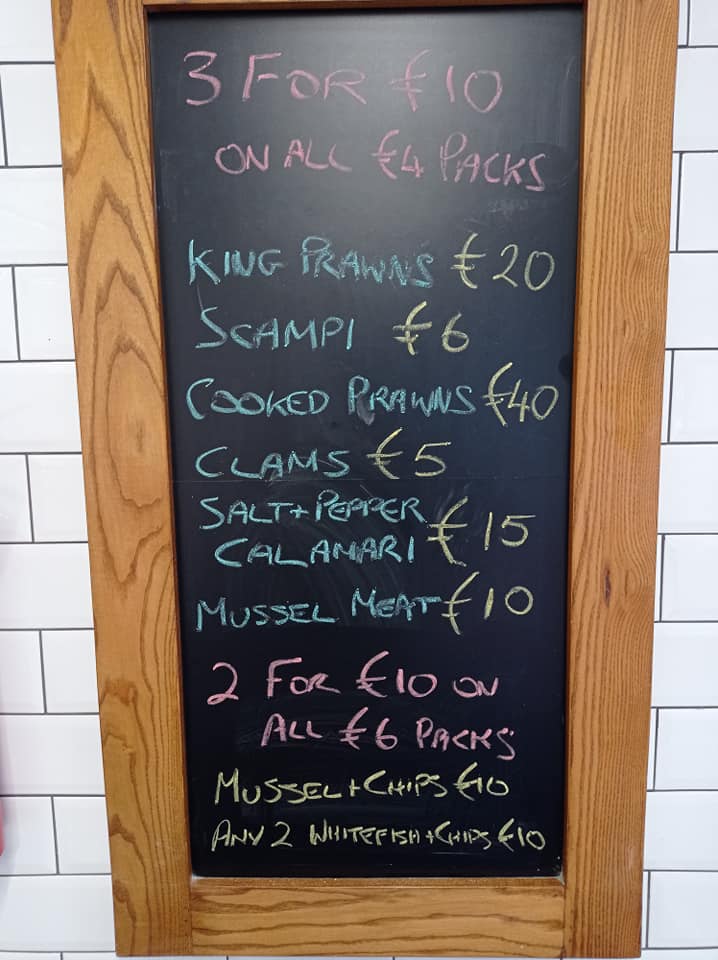 3 FOR €10
ON ALL €4 PACKS
KING PRAWNS €20
SCAMPI €6
COOKED PRAWNS €40
CLAMS €5
SALT + PEPPER
CALAMARI €15
MUSSEL MEAT €10
2 FOR €10 ON
ALL €6 PACKS
MUSSEL + CHIPS €10
ANY 2 WHITEFISH + CHIPS €10